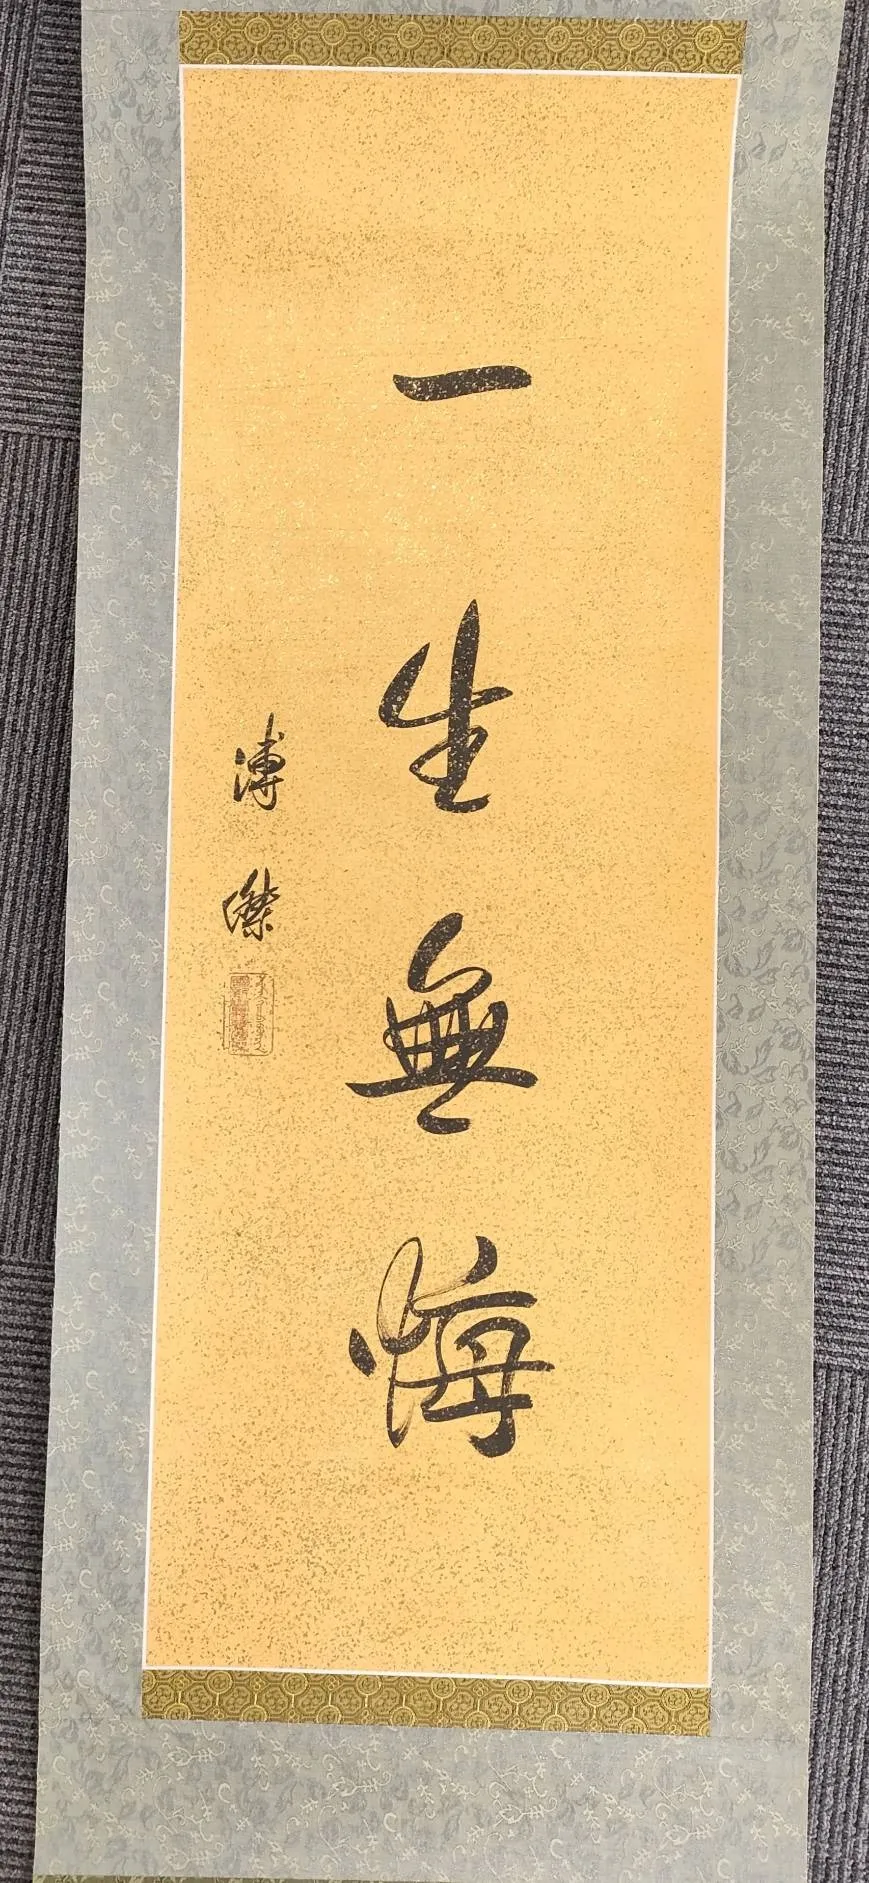 一生無悔
溥傑